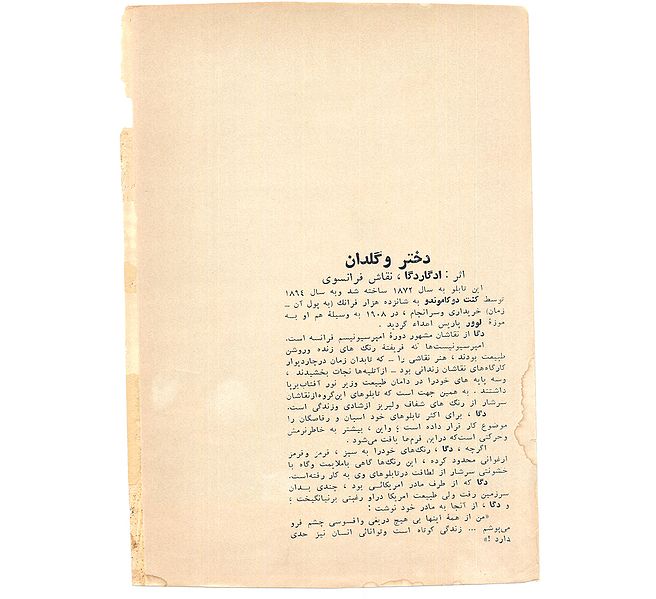 دختر وگلدان
اثر : ادگاردگا ، نقاش فرانسوی
این تابلو به سال ۱۸۷۲ ساخته شد وبه سال ۱۸۹٤
توسط کنت دوکاموندو به شانزده هزار فرانك (به پول آن ــ
زمان) خریداری وسرانجام ، در ۱۹۰۸ به وسیلهٔ هم او بـه
موزهٔ لوور پاریس اهداء گردید .
دگا از نقاشان مشهور دورهٔ امپرسیونیسم فرانسه است.
امپرسیونیست‌ها که فریفتهٔ رنگ های زنده وروشن
طبیعت بودند ، هنر نقاشی را ــ که تابدان زمان درچاردیوار
کارگاه‌های نقاشان زندانی بود ــ ازآتلیه‌ها نجات بخشیدند ،
وسه پایه های خودرا در دامان طبیعت وزیر نور آفتاب‌برپا
داشتند . به همین جهت است که تابلوهای این‌گروه‌ازنقاشان
سرشار از رنگ های شفاف ولبریز ازشادی وزندگی است.
دگا ، برای اکثر تابلوهای خود اسبان و رقاصگان را
موضوع کار قرار داده است ؛ واین ، بیشتر به خاطرنرمش
وحرکتی است‌که دراین فرم‌ها یافت می‌شود .
اگرچه ، دگا ، رنگ‌های خودرا به سبز ، قرمز وقرمز
ارغوانی محدود کرده ، این رنگ‌ها گاهی باملایمت وگاه با
خشونتی سرشار از لطافت درتابلوهای وی به کار رفته‌است.
دگا که از طرف مادر امریکائـی بود ، چندی بـدان
سرزمین رفت ولی طبیعت امریکا دراو رغبتی برنیانگیخت ؛
و دگا ، از آنجا به مادر خود نوشت :
«من از همهٔ اینها بی هیچ دریغی وافسوسی چشم فرو
می‌پوشم ... زندگی کوتاه است وتوانائی انسان نیز حدی
دارد !»